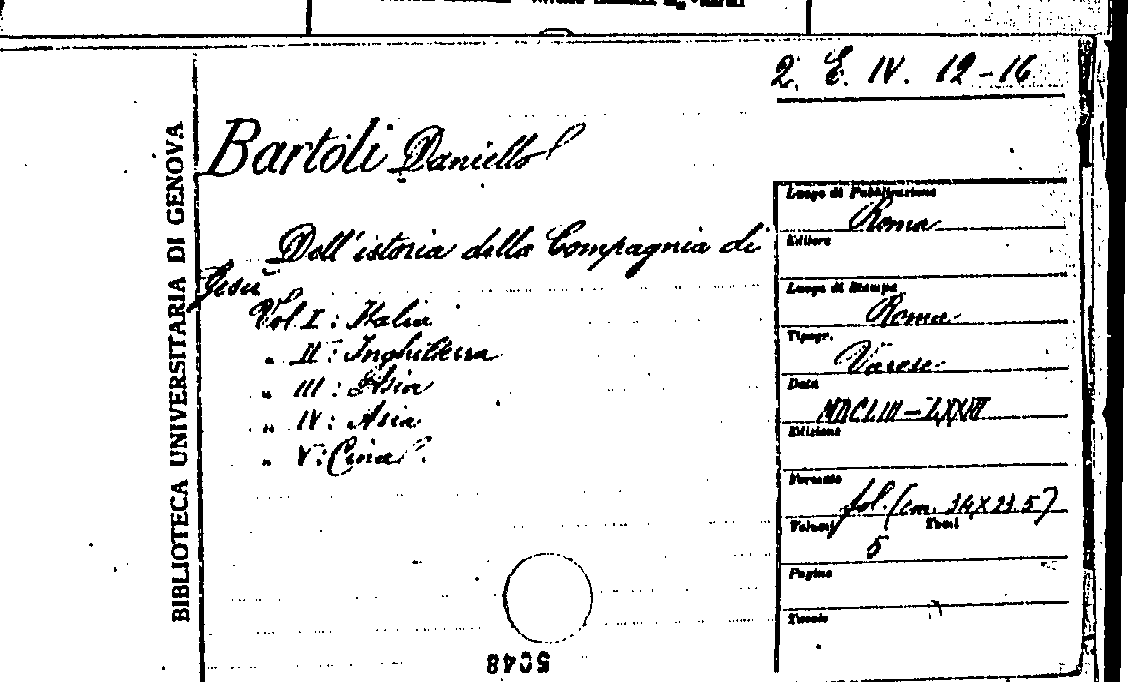 2. E. IV. 12-16
BIBLIOTECA UNIVERSITARIA DI GENOVA
Bartoli Daniello
Dell'istoria della Compagnia di
Gesù
Vol. I: Italia
" II: Inghilterra
" III: Asia
" IV: Asia
" V: Cina
Luogo di Pubblicazione
Roma
Editore
Luogo di Stampa
Roma
Tipogr.
Varese
Data
MDCLIII-LXXIII
Edizione
Formato
fol. (cm. 34X23.5)
Volumi Tomi
5
Pagine
Tavole
5048